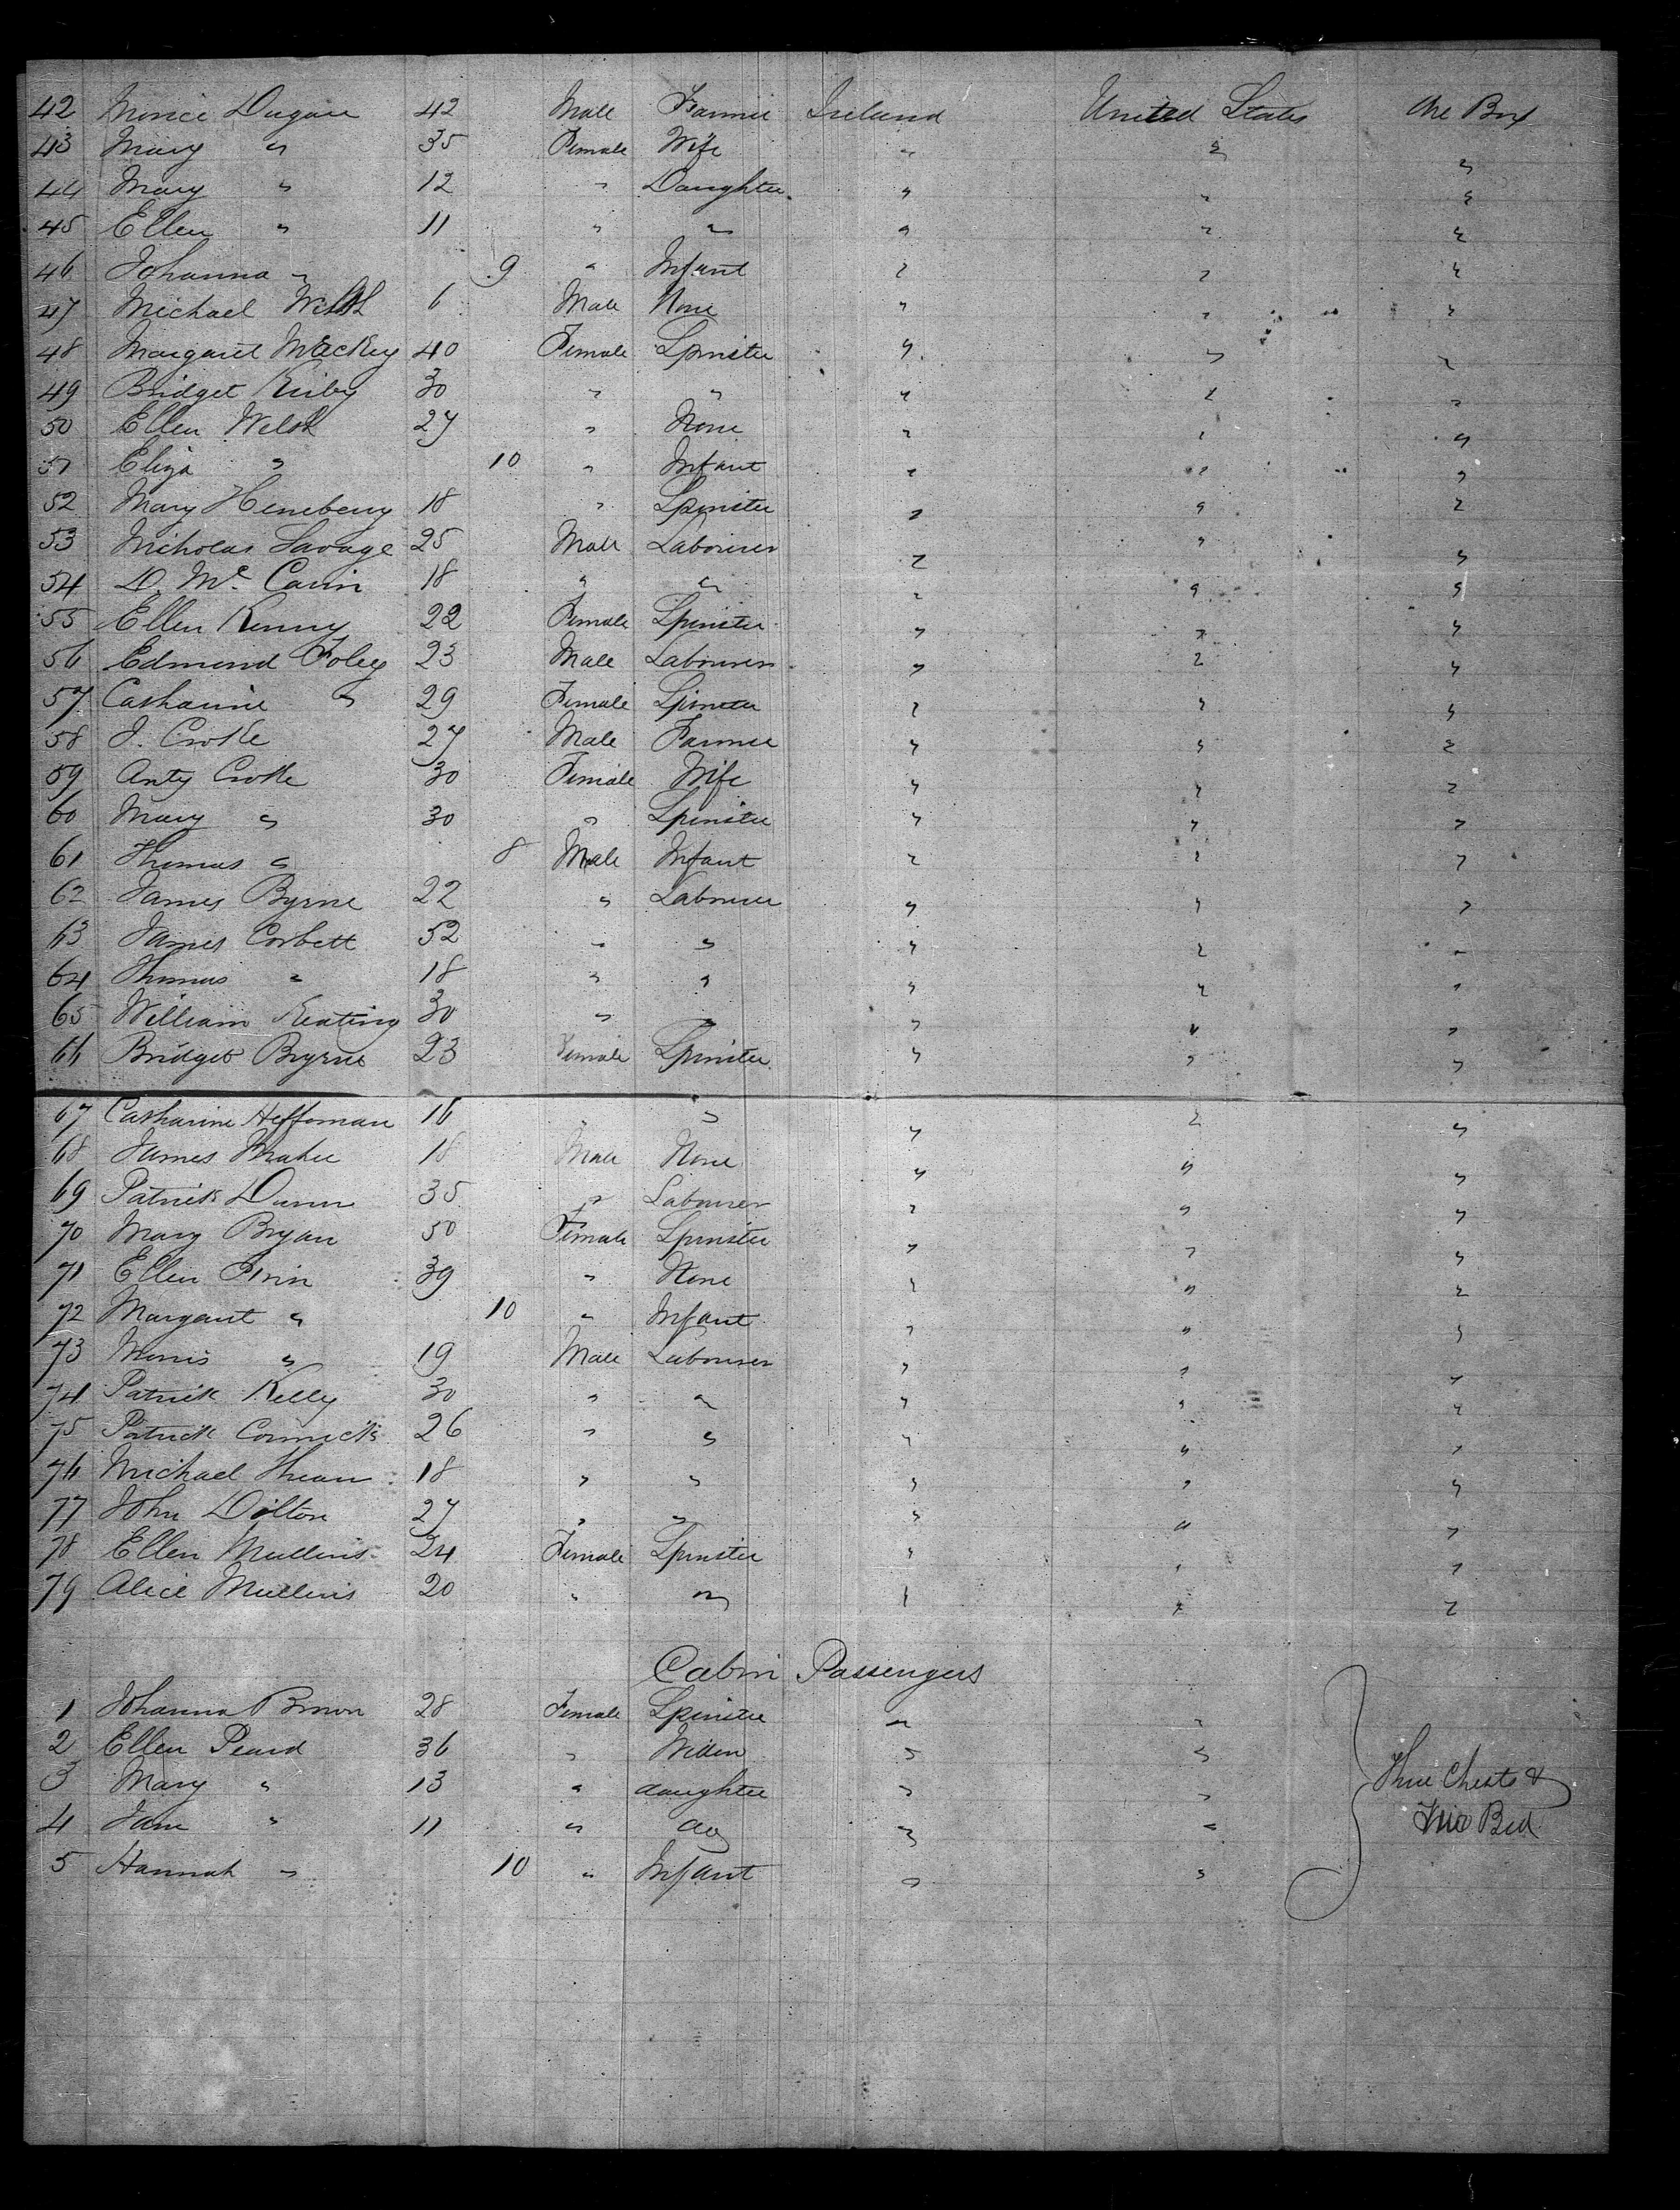 42 Morice Dugan 42 Male Farmer Ireland United States One Box
43 Mary " 35 Female Wife " " "
44 Mary " 12 " Daughter " " "
45 Ellen " 11 " " " " "
46 Johanna " 9 " Infant " " "
47 Michael Welsh 6 Male None " " "
48 Margaret Mackey 40 Female Spinster " " "
49 Bridget Kirby 30 " " " " "
50 Ellen Welsh 27 " None " " "
51 Eliza " 10 " Infant " " "
52 Mary Heneberry 18 " Spinster " " "
53 Nicholas Savage 25 Male Labourer " " "
54 D. Mc. Cavin 18 " " " " "
55 Ellen Kenny 22 Female Spinster " " "
56 Edmund Foley 23 Male Labourer " " "
57 Catharine " 29 Female Spinster " " "
58 J. Crotte 27 Male Farmer " " "
59 Anty Crotte 30 Female Wife " " "
60 Mary " 30 " Spinster " " "
61 Thomas " 8 Male Infant " " "
62 James Byrne 22 " Labourer " " "
63 James Corbett 52 " " " " "
64 Thomas " 18 " " " " "
65 William Keating 30 " " " " "
66 Bridget Bryrne 23 Female Spinster " " "
67 Catharine Heffernan 16 " " " " "
68 James Maher 18 Male None " " "
69 Patrick Dunn 35 " Labourer " " "
70 Mary Bryan 50 Female Spinster " " "
71 Ellen 39 " None " " "
72 Margaret " 10 " Infant " " "
73 Morris " 19 Male Labourer " " "
74 Patrick Kelly 30 " " " " "
75 Patrick Cormick 26 " " " " "
76 Michael 18 " " " " "
77 John Dilton 27 " " " " "
78 Ellen Mullins 24 Female Spinster " " "
79 Alice Mullins 20 " " " " "
Cabin Passengers
1 Johanna Brown 28 Female Spinster " "
2 Ellen Peard 36 " Widow " "
3 Mary " 13 " daughter " "
Three Chests &
4 Jane " 11 " do " "
Bed
5 Hannah " 10 " Infant " "